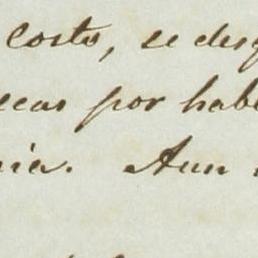 costo, se desq
ecas por habe
nia. Aun